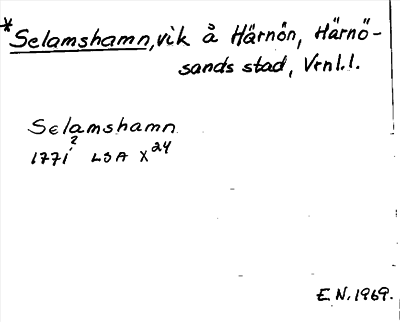 *Selamshamn, vik å Härnön, Härnö-
sands stad, Vrnl.l.
Selamshamn
1771² LSA X24
E N. 1969.